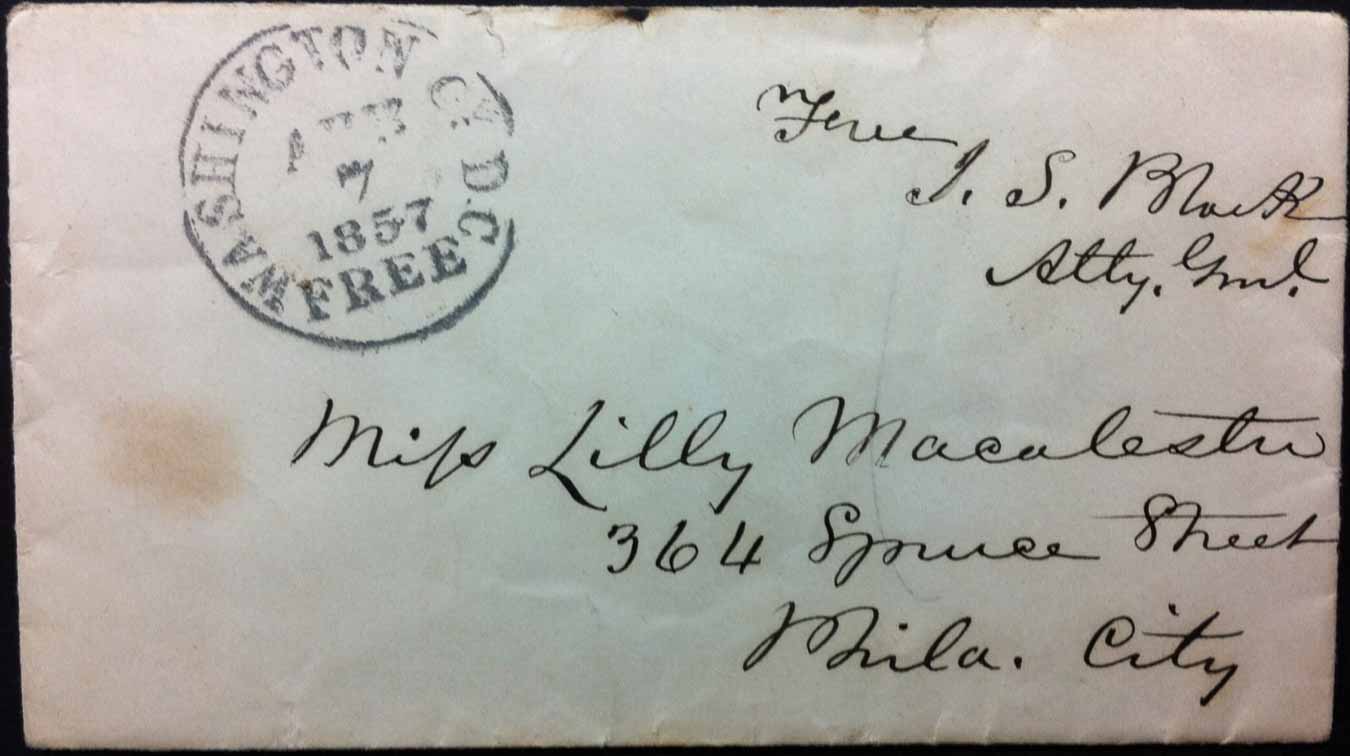 WASHINGTON CY. D.C.
7
1857
FREE
Free
J. S. Black
Atty. Genl.
Miss Lilly Macalester
364 Spruce Street
Phila. City